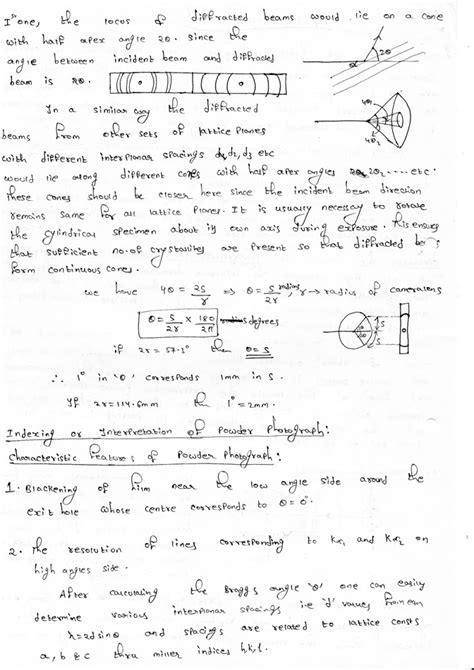 one, the locus of diffracted beams would lie on a cone
with half apex angle 2θ. since the
angle between incident beam and diffracted
beam is 2θ.
2θ
α
In a similar way the diffracted
beams from other sets of lattice planes
4θ1
4θ2
with different interplanar spacings d1, d2, d3 etc
would lie along different cones with half apex angles 2θ2 ..... etc.
these cones should be closer here since the incident beam direction
remains same for all lattice planes. It is usually necessary to rotate
the cylindrical specimen about its own axis during exposure. This ensures
that sufficient no. of crystallites are present so that diffracted
form continuous cones.
we have 4θ = 2S/r ⇒ θ = S/2r radians, r → radius of camera
θ = S/2r × 180/2π degrees
S
S
if 2r = 57.3° then θ = S
∴ 1° in 'θ' corresponds 1mm in S.
If 2r = 114.6mm 1° = 2mm.
Indexing or Interpretation of Powder Photograph:
Characteristic Features of Powder Photograph:
1. Blackening of film near the low angle side around the
exit hole whose centre corresponds to θ = 0°.
2. The resolution of lines corresponding to Kα1 and Kα2 on
high angles side.
After calculating the Braggs angle 'θ' one can easily
determine various interplanar spacings i.e 'd' values from
λ = 2d sinθ and spacings are related to lattice consts
a, b & c thru miller indices h, k, l.